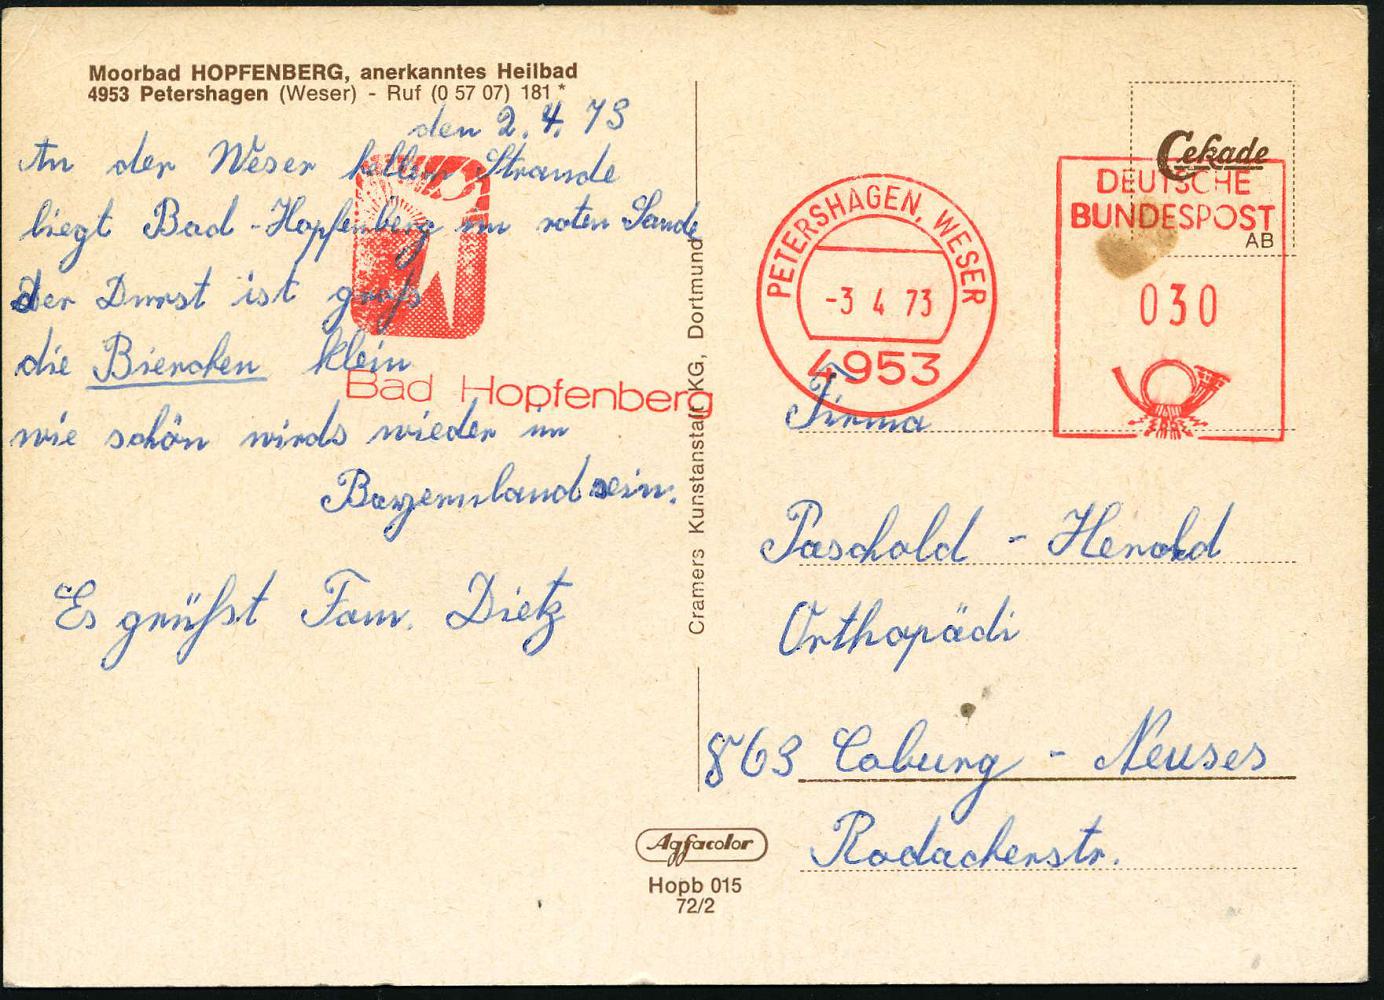 Moorbad HOPFENBERG, anerkanntes Heilbad
4953 Petershagen (Weser) - Ruf (0 57 07) 181*
den 2. 4. 73
An der Weser hellem Strande
liegt Bad-Hopfenberg im roten Sande
der Durst ist groß
die Bierchen klein
wie schön wirds wieder im
Bayernland sein.
Es grüßt Fam. Dietz
Bad Hopfenberg
Cramers Kunstanstalt KG, Dortmund
PETERSHAGEN, WESER
-3 4 73
4953
Cekade
DEUTSCHE
BUNDESPOST
AB
030
Firma
Paschold - Herold
Orthopädi
863 Coburg - Neuses
Rodacherstr.
Agfacolor
Hopb 015
72/2